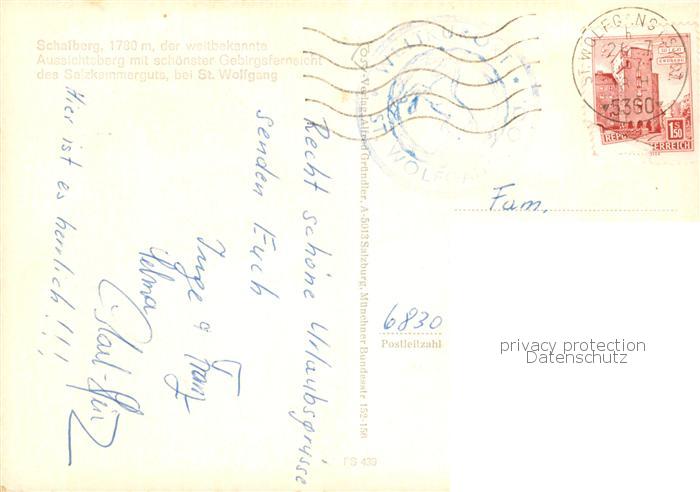 Schafberg, 1780 m, der weltbekannte
Aussichtsberg mit schönster Gebirgsfernsicht
des Salzkammerguts, bei St. Wolfgang
Recht schöne Urlaubsgrüsse
senden Euch
Inge & Franz
Helma
Karl-Heinz
Hier ist es herrlich!!!
Verlag Alfred Gründler, A-5013 Salzburg, Münchner Bundesstr. 152-156
FS 439
ST. WOLFGANG
5360
REPUBLIK ÖSTERREICH
1.50
Fam.
6830
Postleitzahl
privacy protection
Datenschutz